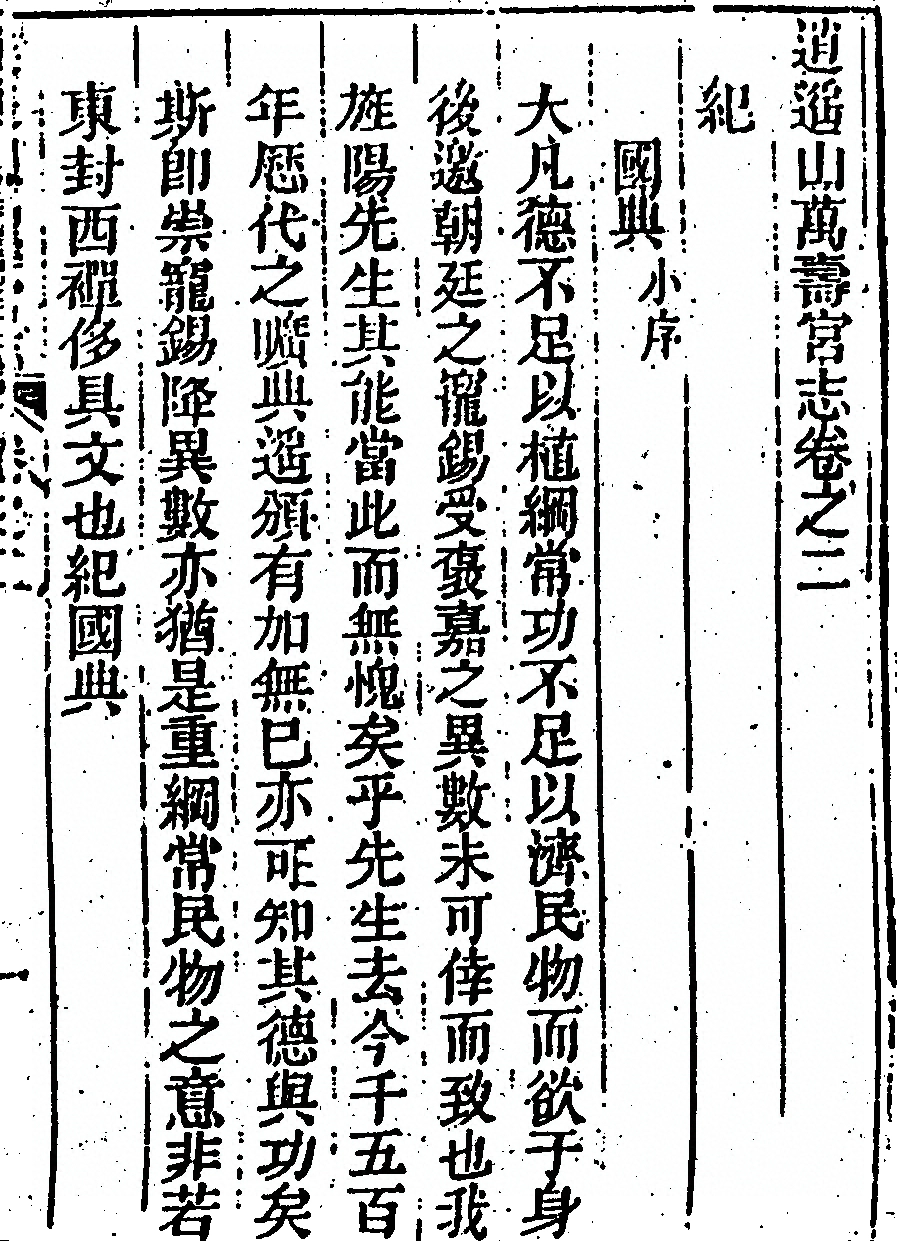 逍遥山萬壽宮志卷之二
紀
國典 小序
大凡德不足以植綱常功不足以濟民物而欲于身
後邀朝廷之寵錫受褒嘉之異數未可倖而致也我
旌陽先生其能當此而無愧矣乎先生去今千五百
年歷代之曠典遥頒有加無已亦可知其德與功矣
斯卽崇寵錫降異數亦猶是重綱常民物之意非若
東封西禪侈具文也紀國典